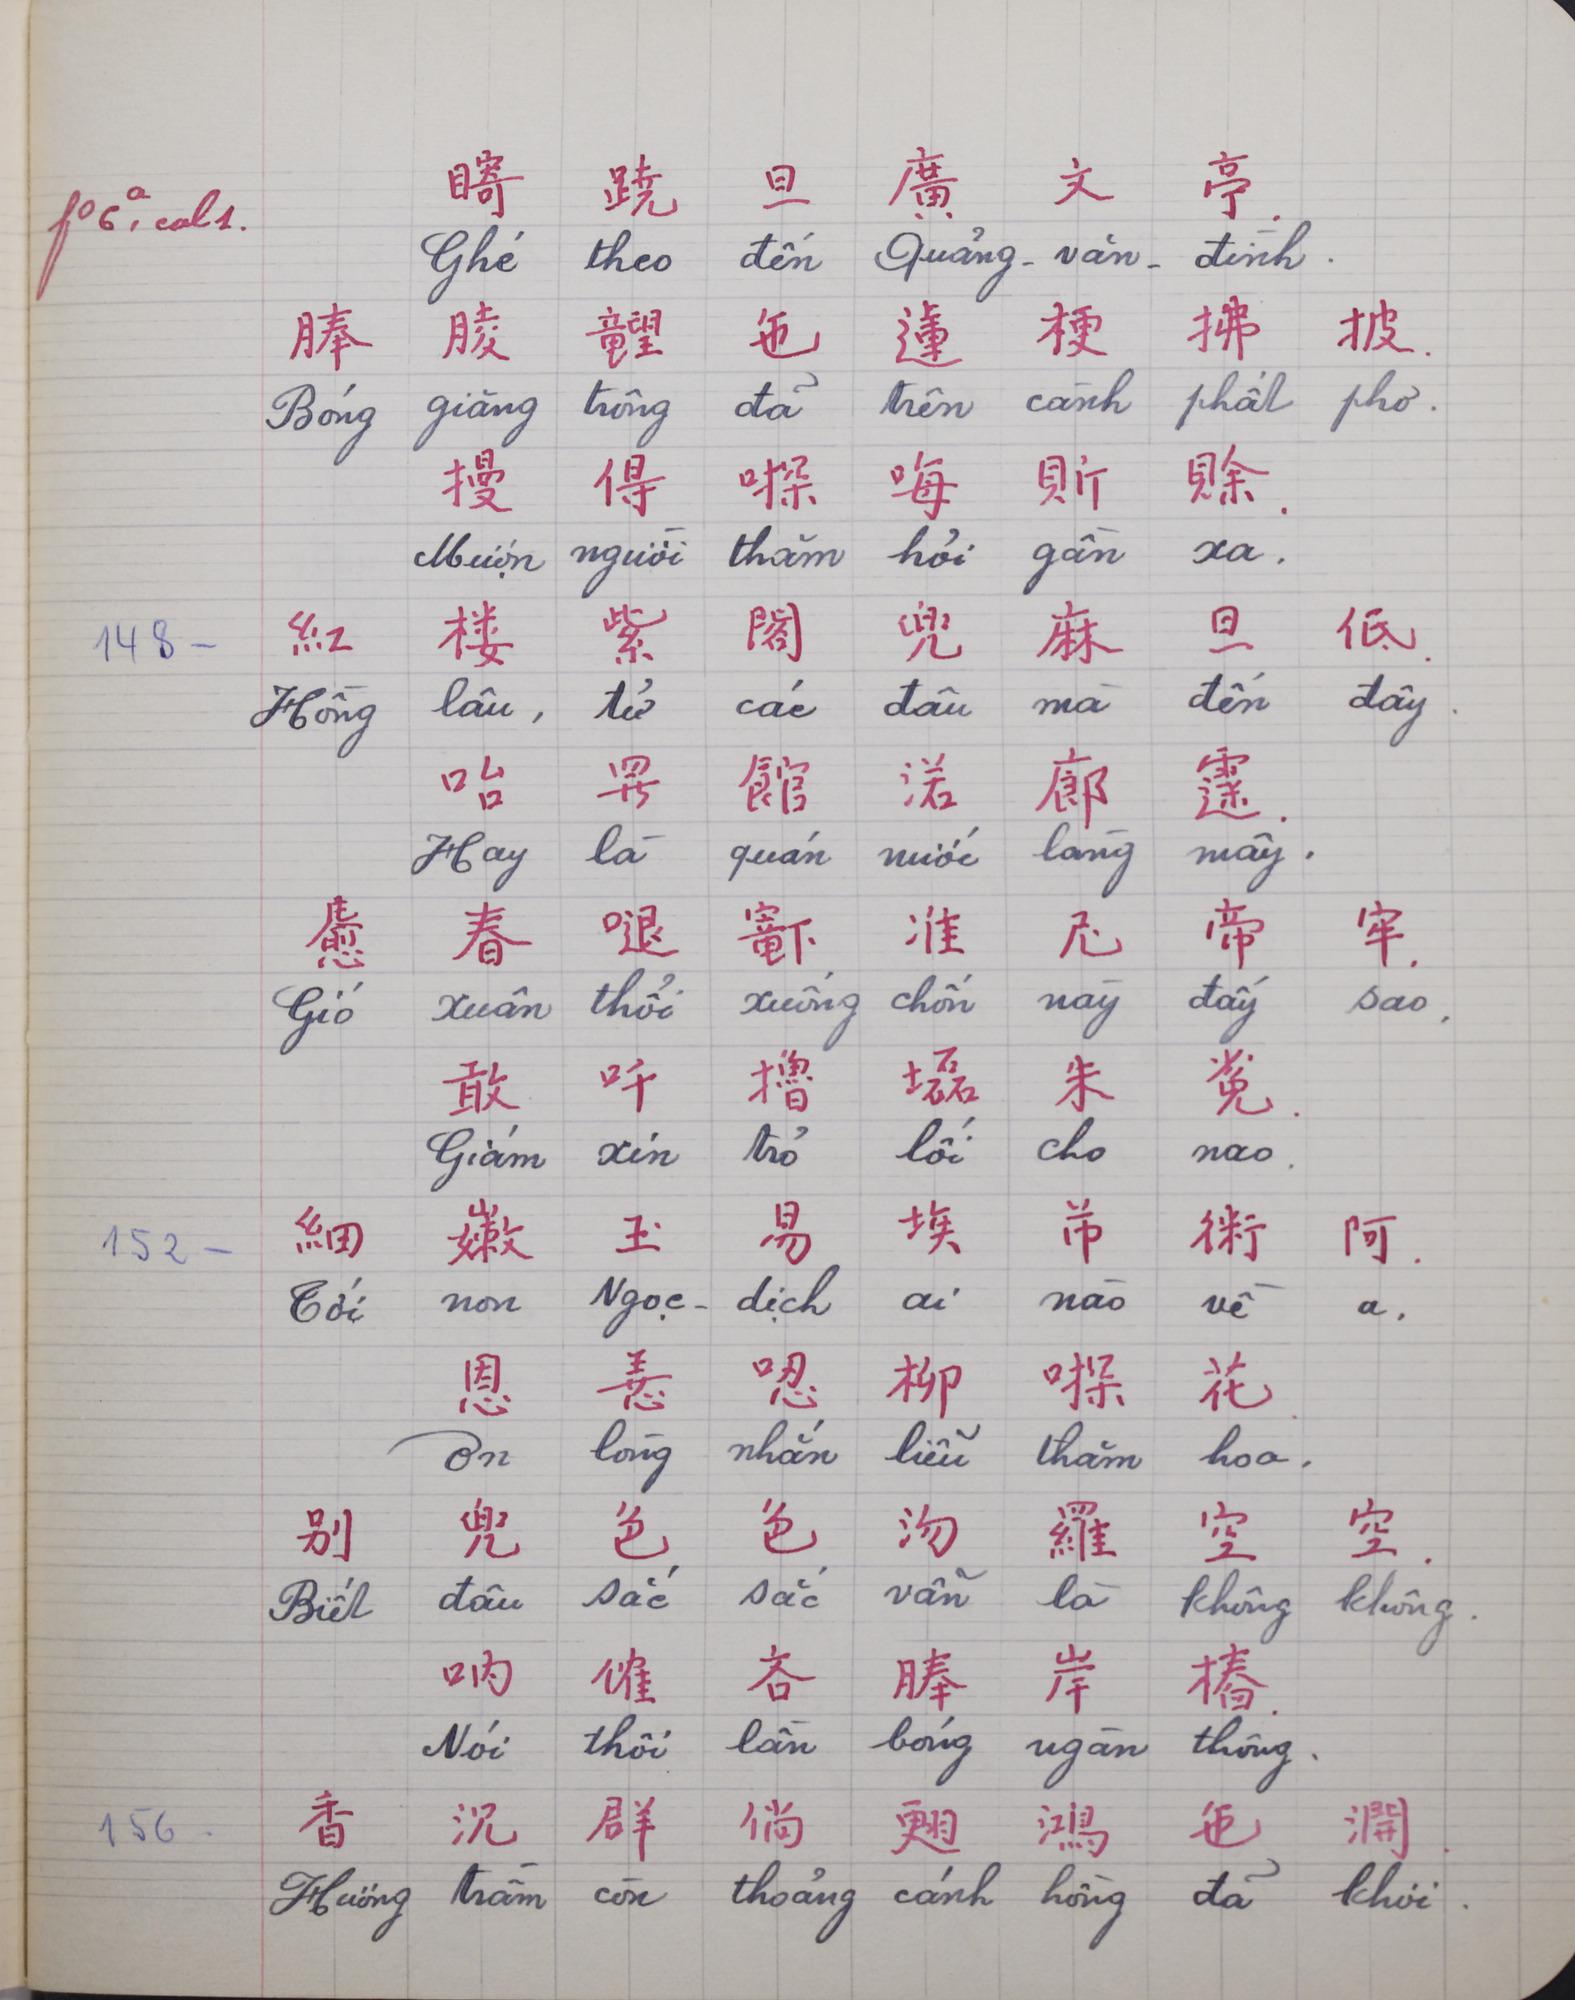 fº 6ª, col 1.
䁶 蹺 旦 廣 文 亭.
Ghé theo đến Quảng-văn-đình.
𣈖 𦝄 𥊣 㐌 蓮 梗 拂 披.
Bóng giăng trông đã trên cành phất phơ.
摱 得 嗦 𠳨 𧵆 賒.
Mượn người thăm hỏi gần xa.
148- 紅 楼 紫 閣 兜 麻 旦 低.
Hồng lâu, tử các đâu mà đến đây.
咍 𱺵 館 渃 廊 𩄲.
Hay là quán nước làng mây.
春 准 尼 帝 牢.
Gió xuân thổi xuống chốn này đấy sao.
敢 吀 擼 磊 朱 鬧.
Giám xin trỏ lối cho nao.
152- 細 嫩 玉 易 埃 芇 衛 阿.
Tới non Ngọc-dịch ai nào về a.
恩 𢚸 𠴍 柳 嗦 花.
Ơn lòng nhắn liễu thăm hoa.
别 兜 色 色 沕 羅 空 空.
Biết đâu sắc sắc vẫn là không không.
吶 傕 吝 𣈖 岸 樁.
Nói thôi lần bóng ngàn thông.
156- 香 沉 群 倘 𦑃 鴻 㐌 濶.
Hương trầm còn thoảng cánh hồng đã khơi.